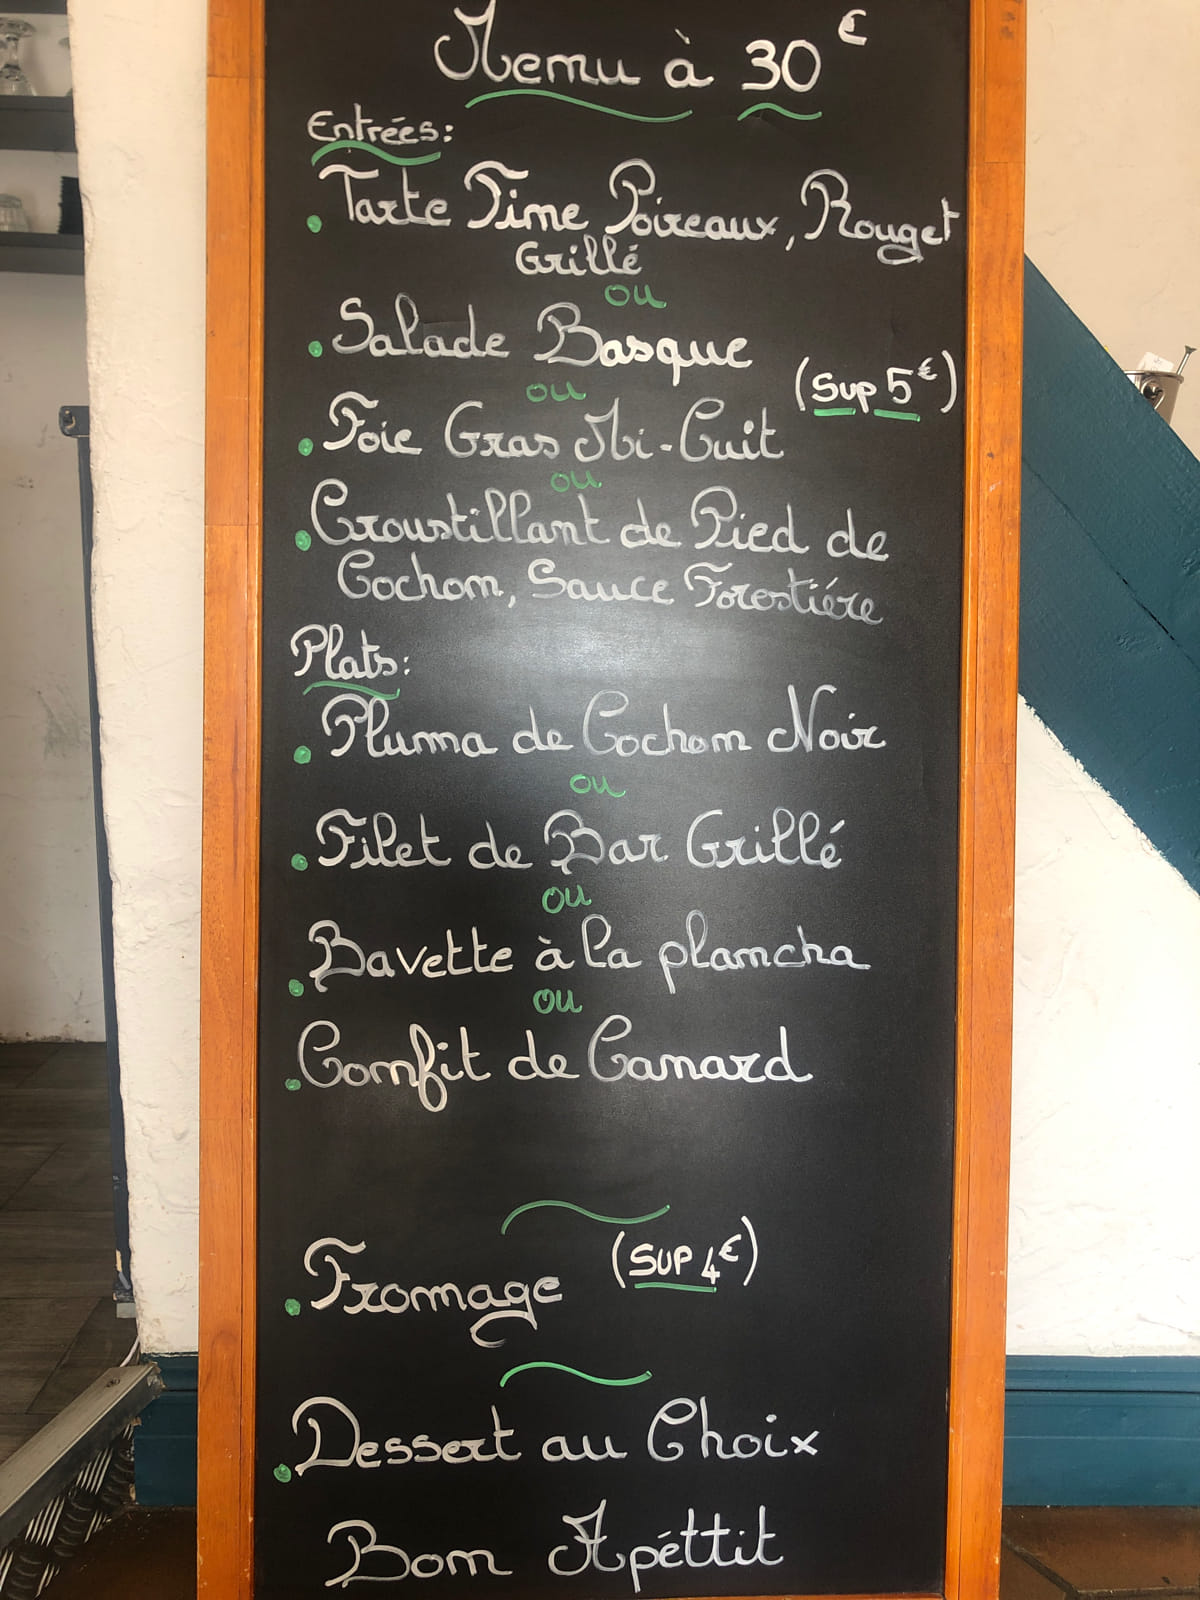 Menu à 30€
Entrées:
• Tarte Fine Poireaux, Rouget
Grillé
ou
• Salade Basque
ou
(Sup 5€)
• Foie Gras Mi-Cuit
ou
• Croustillant de Pied de
Cochon, Sauce Forestiére
Plats:
• Pluma de Cochon Noir
ou
• Filet de Bar Grillé
ou
• Bavette à la plancha
ou
• Confit de Canard
(SUP 4€)
• Fromage
• Dessert au Choix
Bon Apéttit